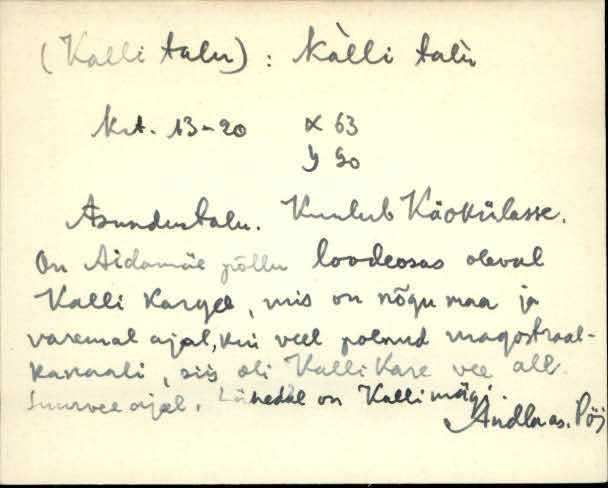 (Kalli talu) : kàlli talù
Krt. 13-20 x 63
y 90
Asundustalu. Kuulub Käokülasse.
On Aidamäe põllu loodeosas oleval
Kalli Karyel, mis on nõgu maa ja
varemal ajal, kui veel polnud magostraal-
kanaali, siis oli Kalli Kare vee all
suurvee ajal. Lähedal on Kalli mägi.
Andla as. Pöi